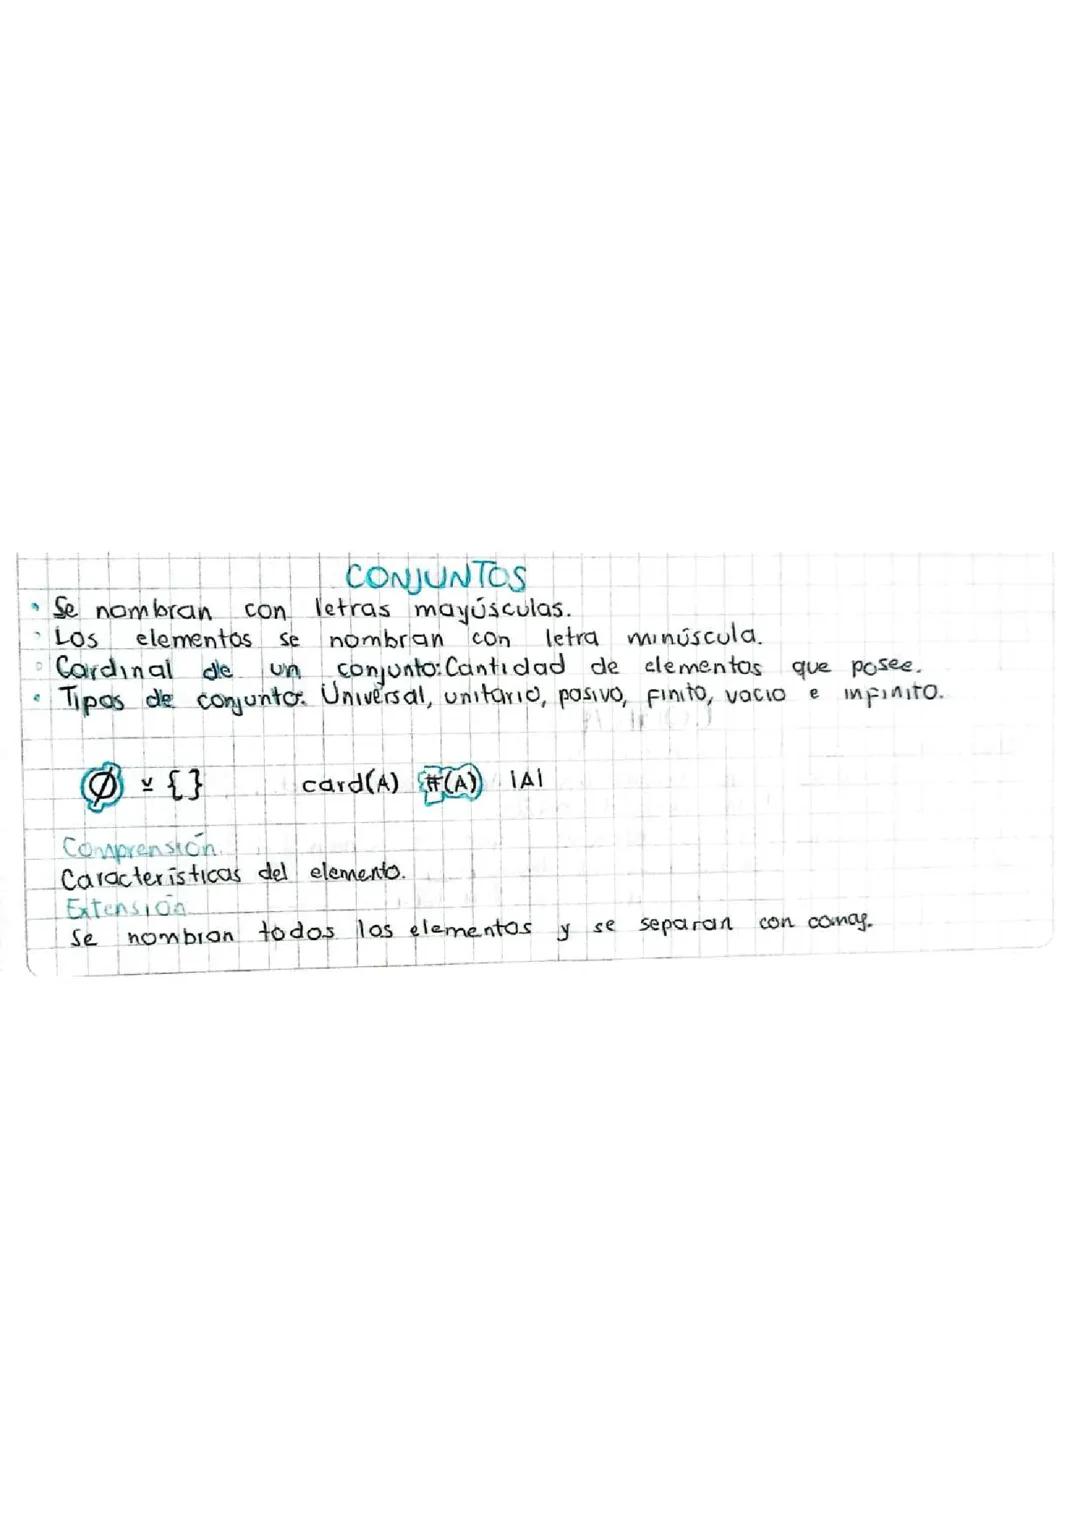 CONJUNTOS
• Se nombran con letras mayúsculas.
• Los elementos se nombran con letra minúscula.
• Cardinal de un conjunto: Cantidad de elementos que posee.
• Tipos de conjunto: Universal, unitario, posivo, finito, vacio e infinito.
Ø y { } card(A) #(A) |A|
Comprensión
Características del elemento.
Extensión
Se nombran todos los elementos y se separan con comas.